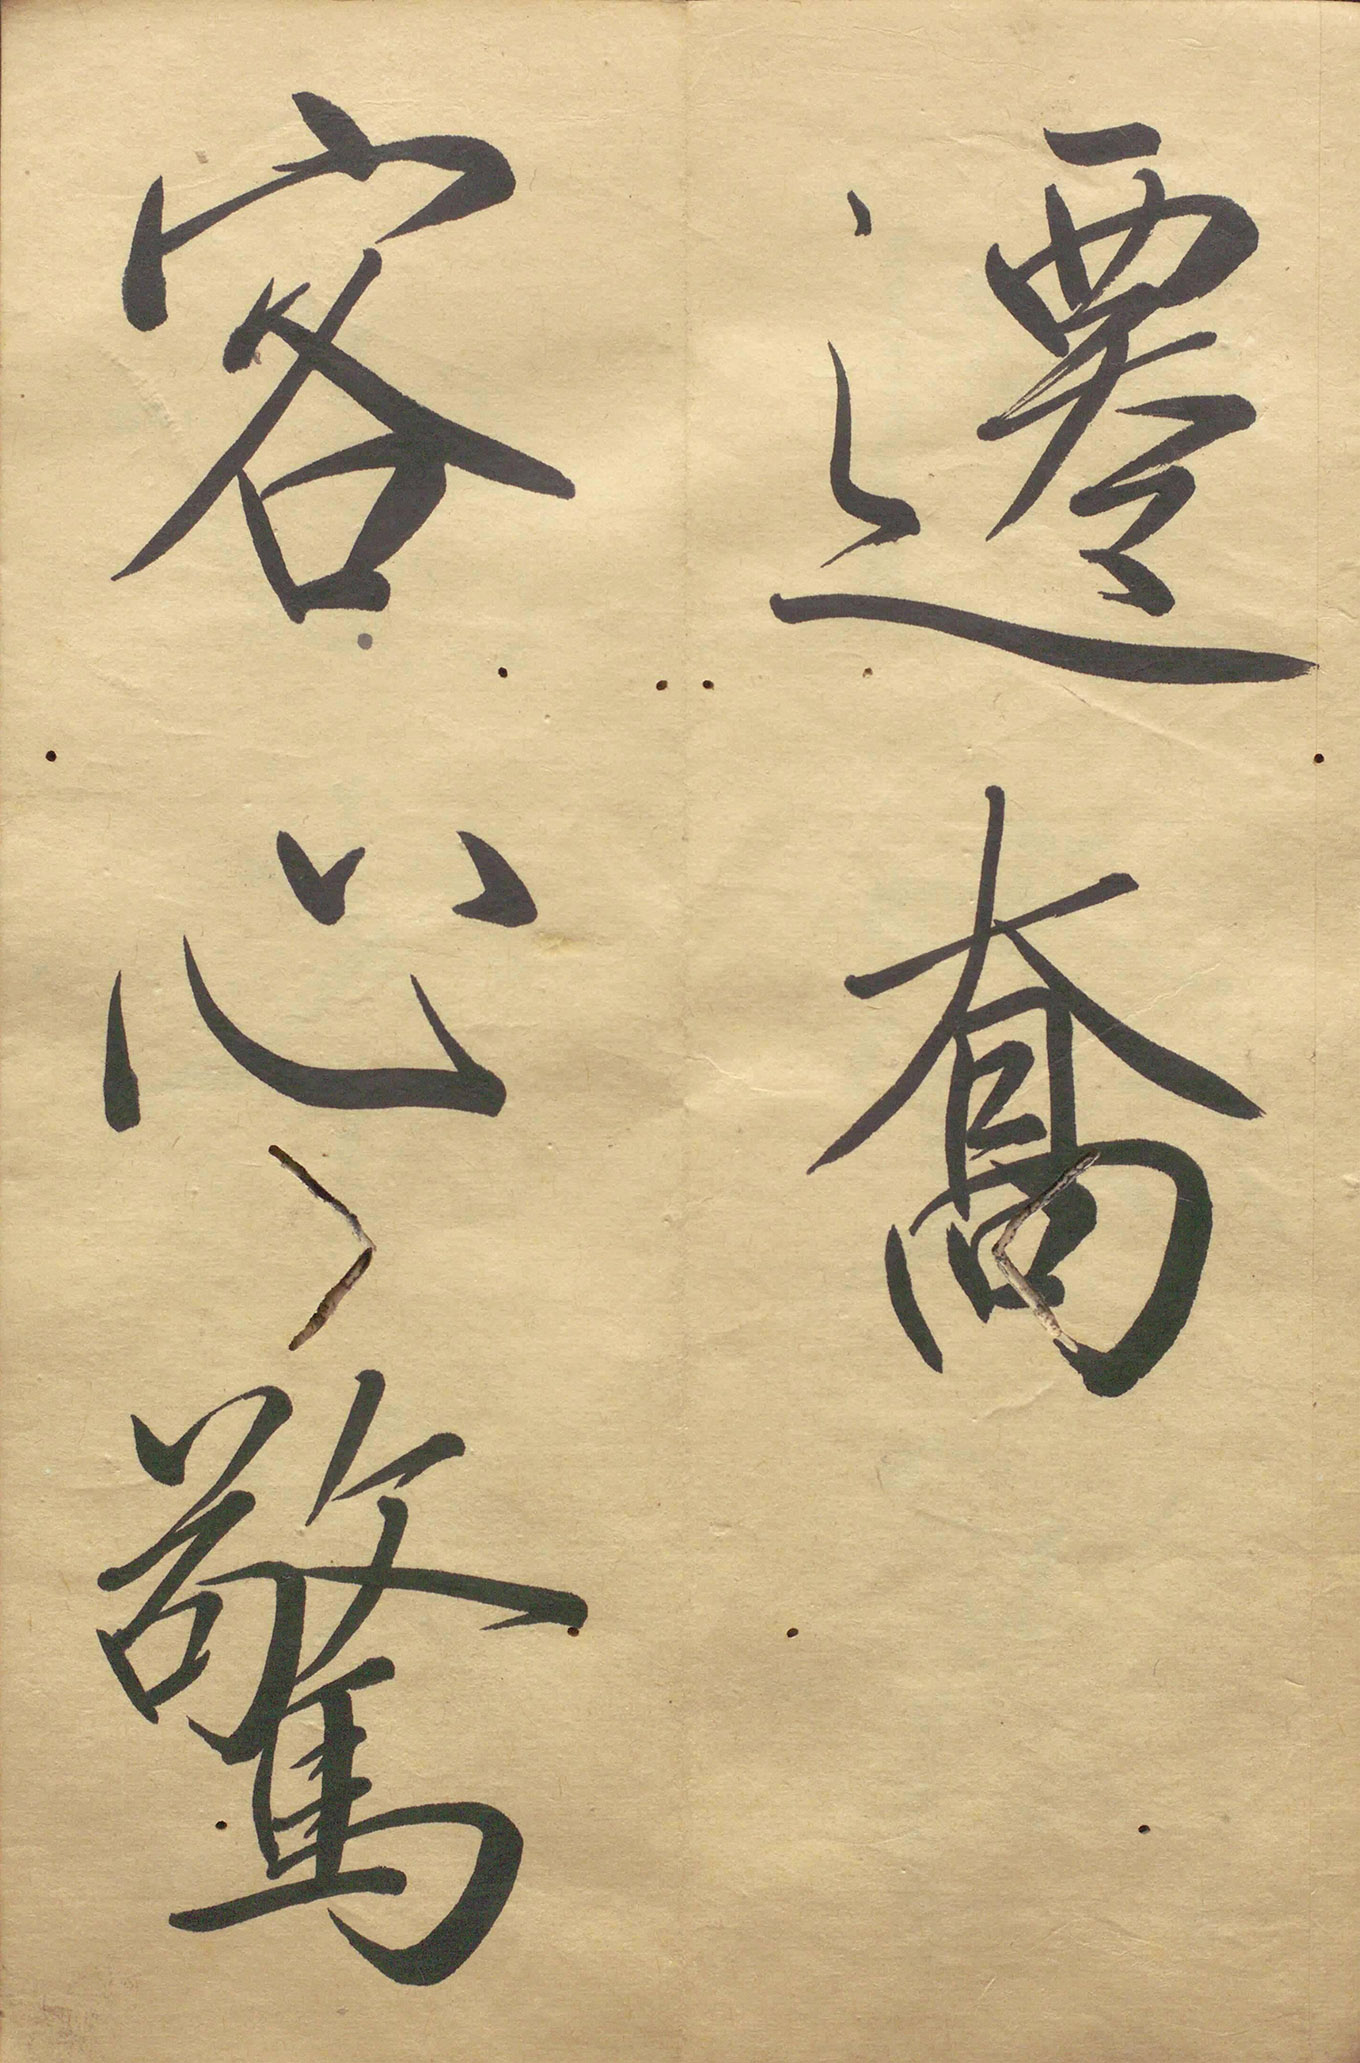 遷喬
客心驚